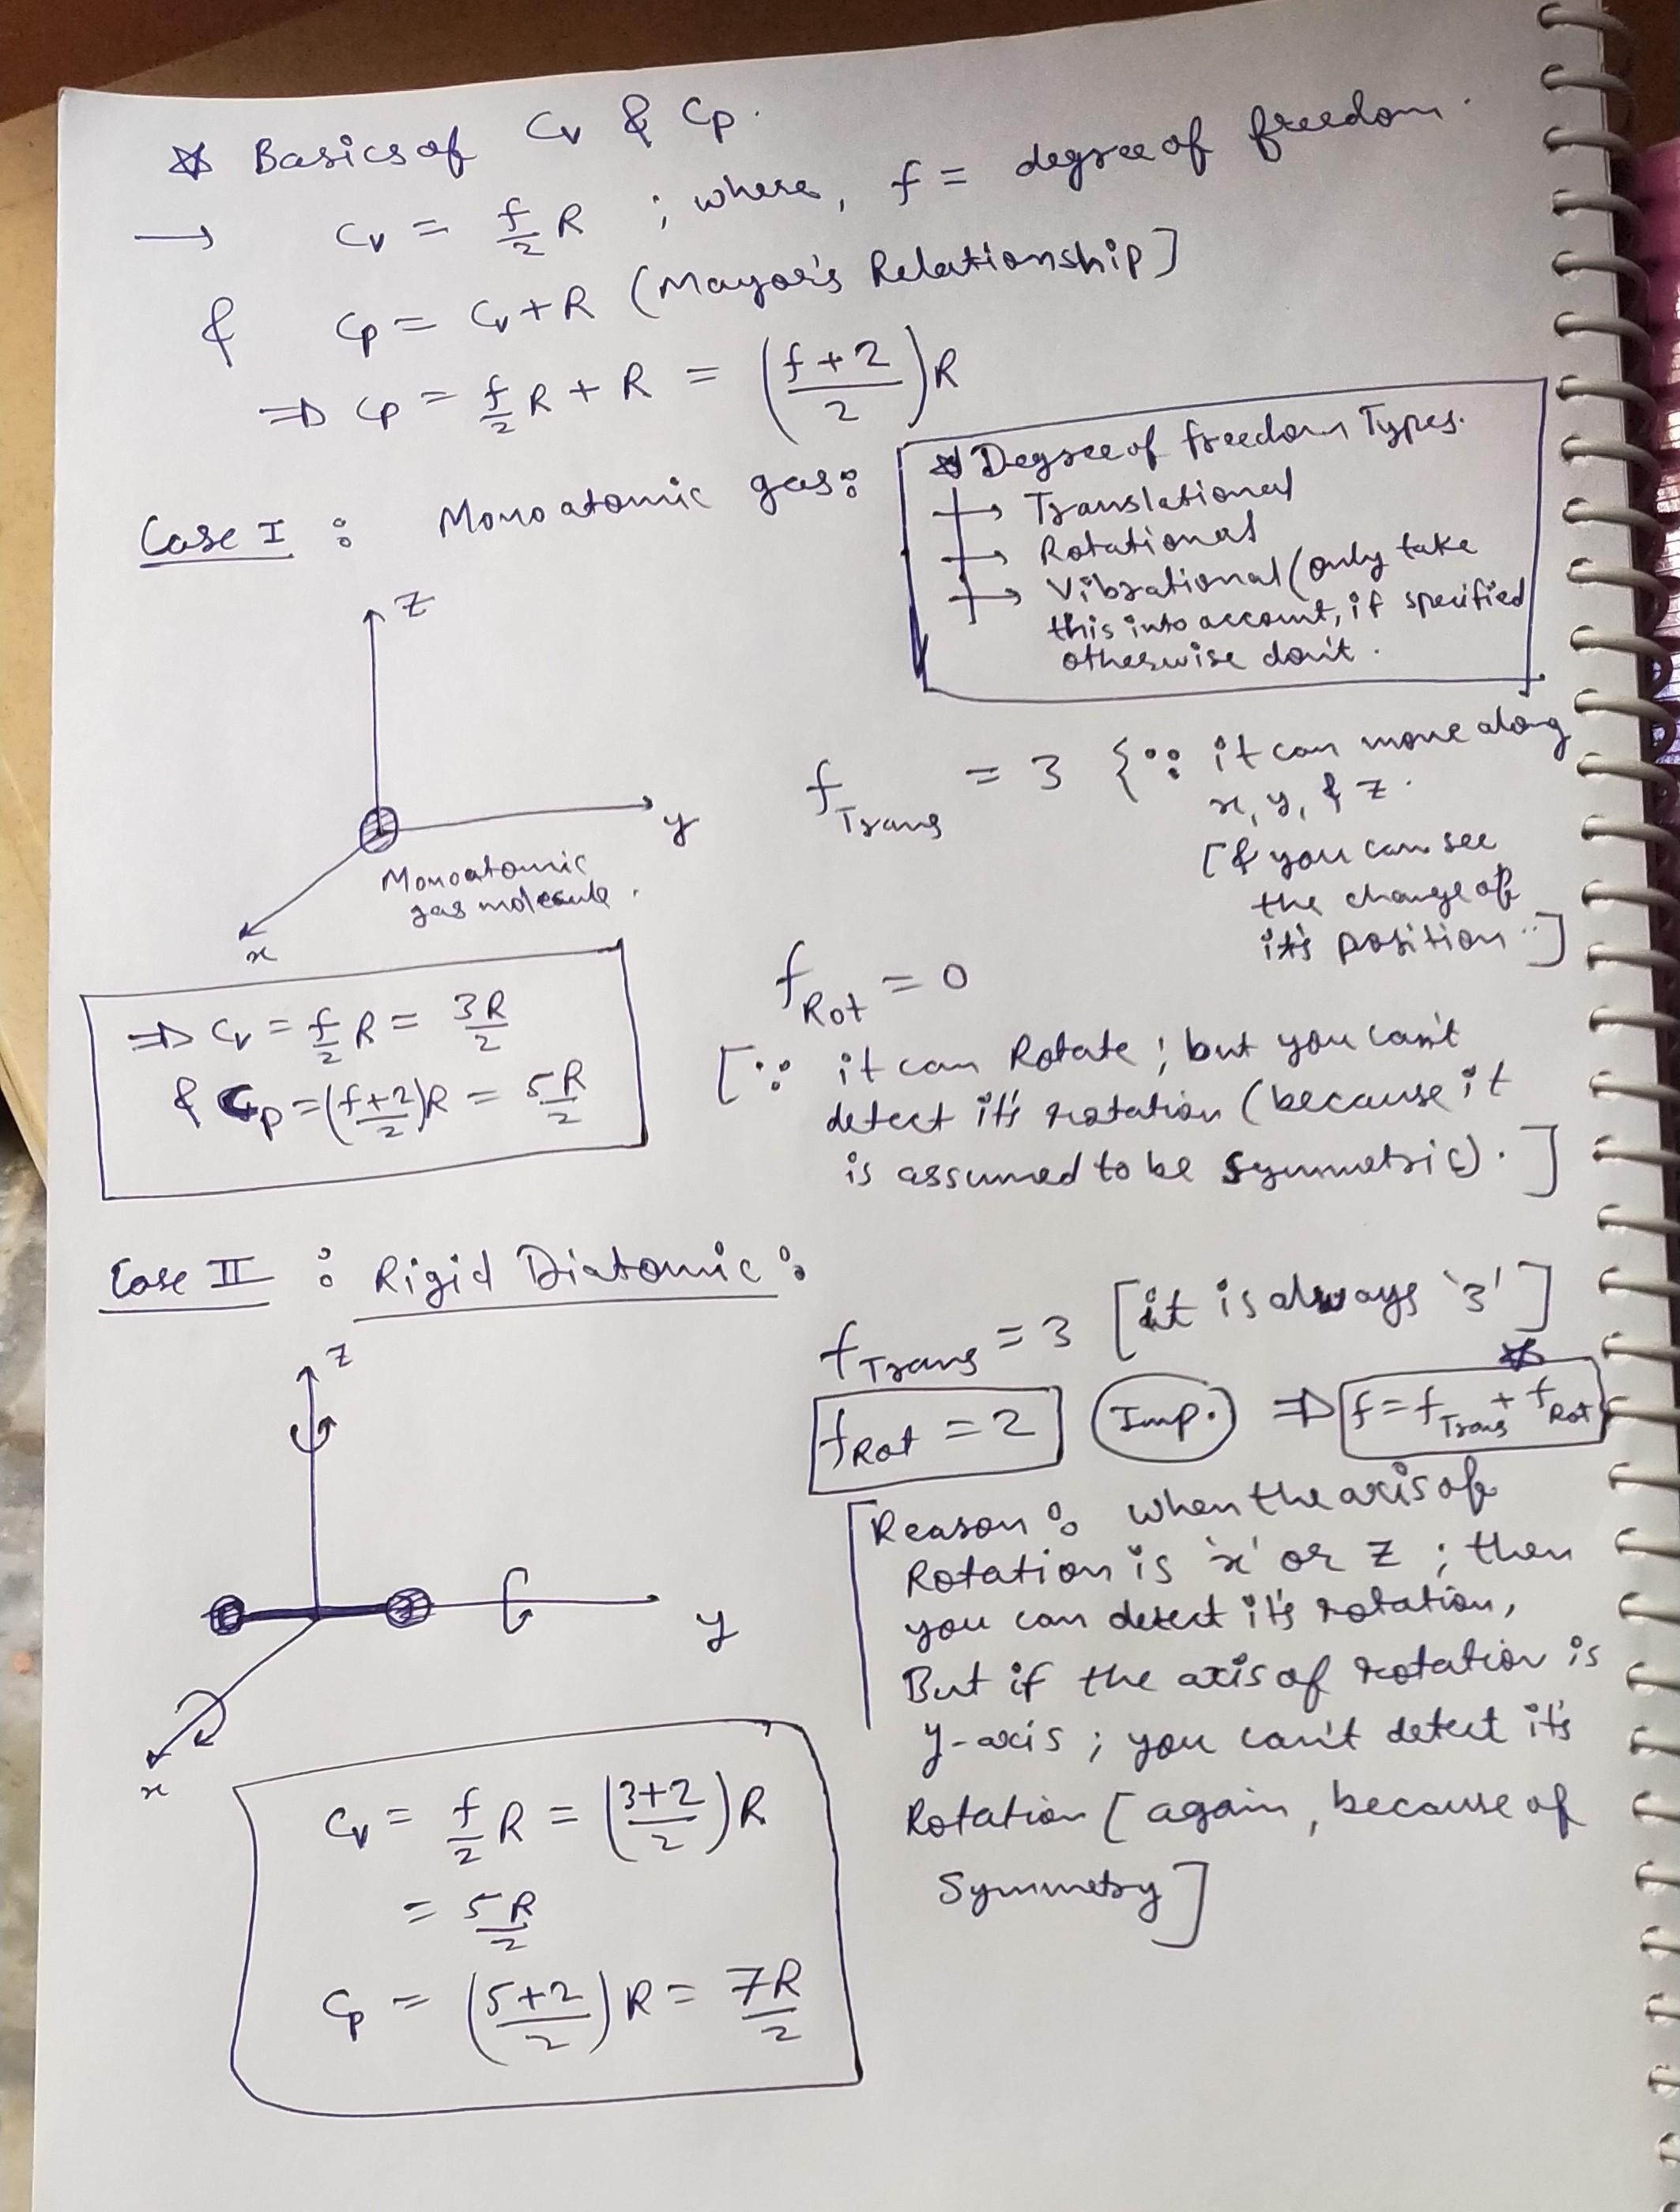 ☆ Basics of Cv & Cp.
→ Cv = f/2 R ; where, f = degree of freedom.
& Cp = Cv + R (Mayor's Relationship]
⇒ Cp = f/2 R + R = (f+2/2)R
Case I : Monoatomic gas:
☆ Degree of freedom Types.
→ Translational
→ Rotational
→ Vibrational (only take
this into account, if specified
otherwise don't.
z
y
x
Monoatomic
gas molecule.
f Trans = 3 {∵ it can move along
x, y, & z.
[& you can see
the change of
it's position.]
⇒ Cv = f/2 R = 3R/2
& Cp = (f+2/2)R = 5R/2
f Rot = 0
[∵ it can Rotate ; but you can't
detect it's rotation (because it
is assumed to be symmetric). ]
Case II : Rigid Diatomic :
z
y
x
f Trans = 3 [it is always '3']
f Rot = 2 Imp. ⇒ f = f Trans + f Rot ☆
[Reason : when the axis of
Rotation is 'x' or z ; then
you can detect it's rotation,
But if the axis of rotation is
y-axis ; you can't detect it's
Rotation [again, because of
Symmetry]
Cv = f/2 R = (3+2/2)R
= 5R/2
Cp = (5+2/2)R = 7R/2